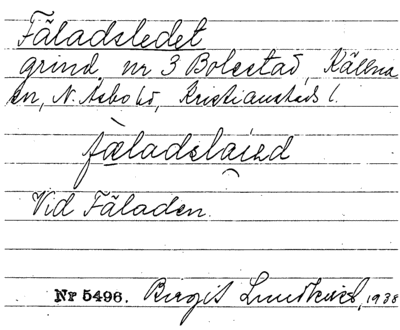 Fäladsledet
grind nr 3 Bolestad, Källna
sn, N. Åsbo hd, Kristianstads l.
fæladslaied
Vid Fäladen.
Nr 5496. Birgit Lundkvist, 1938